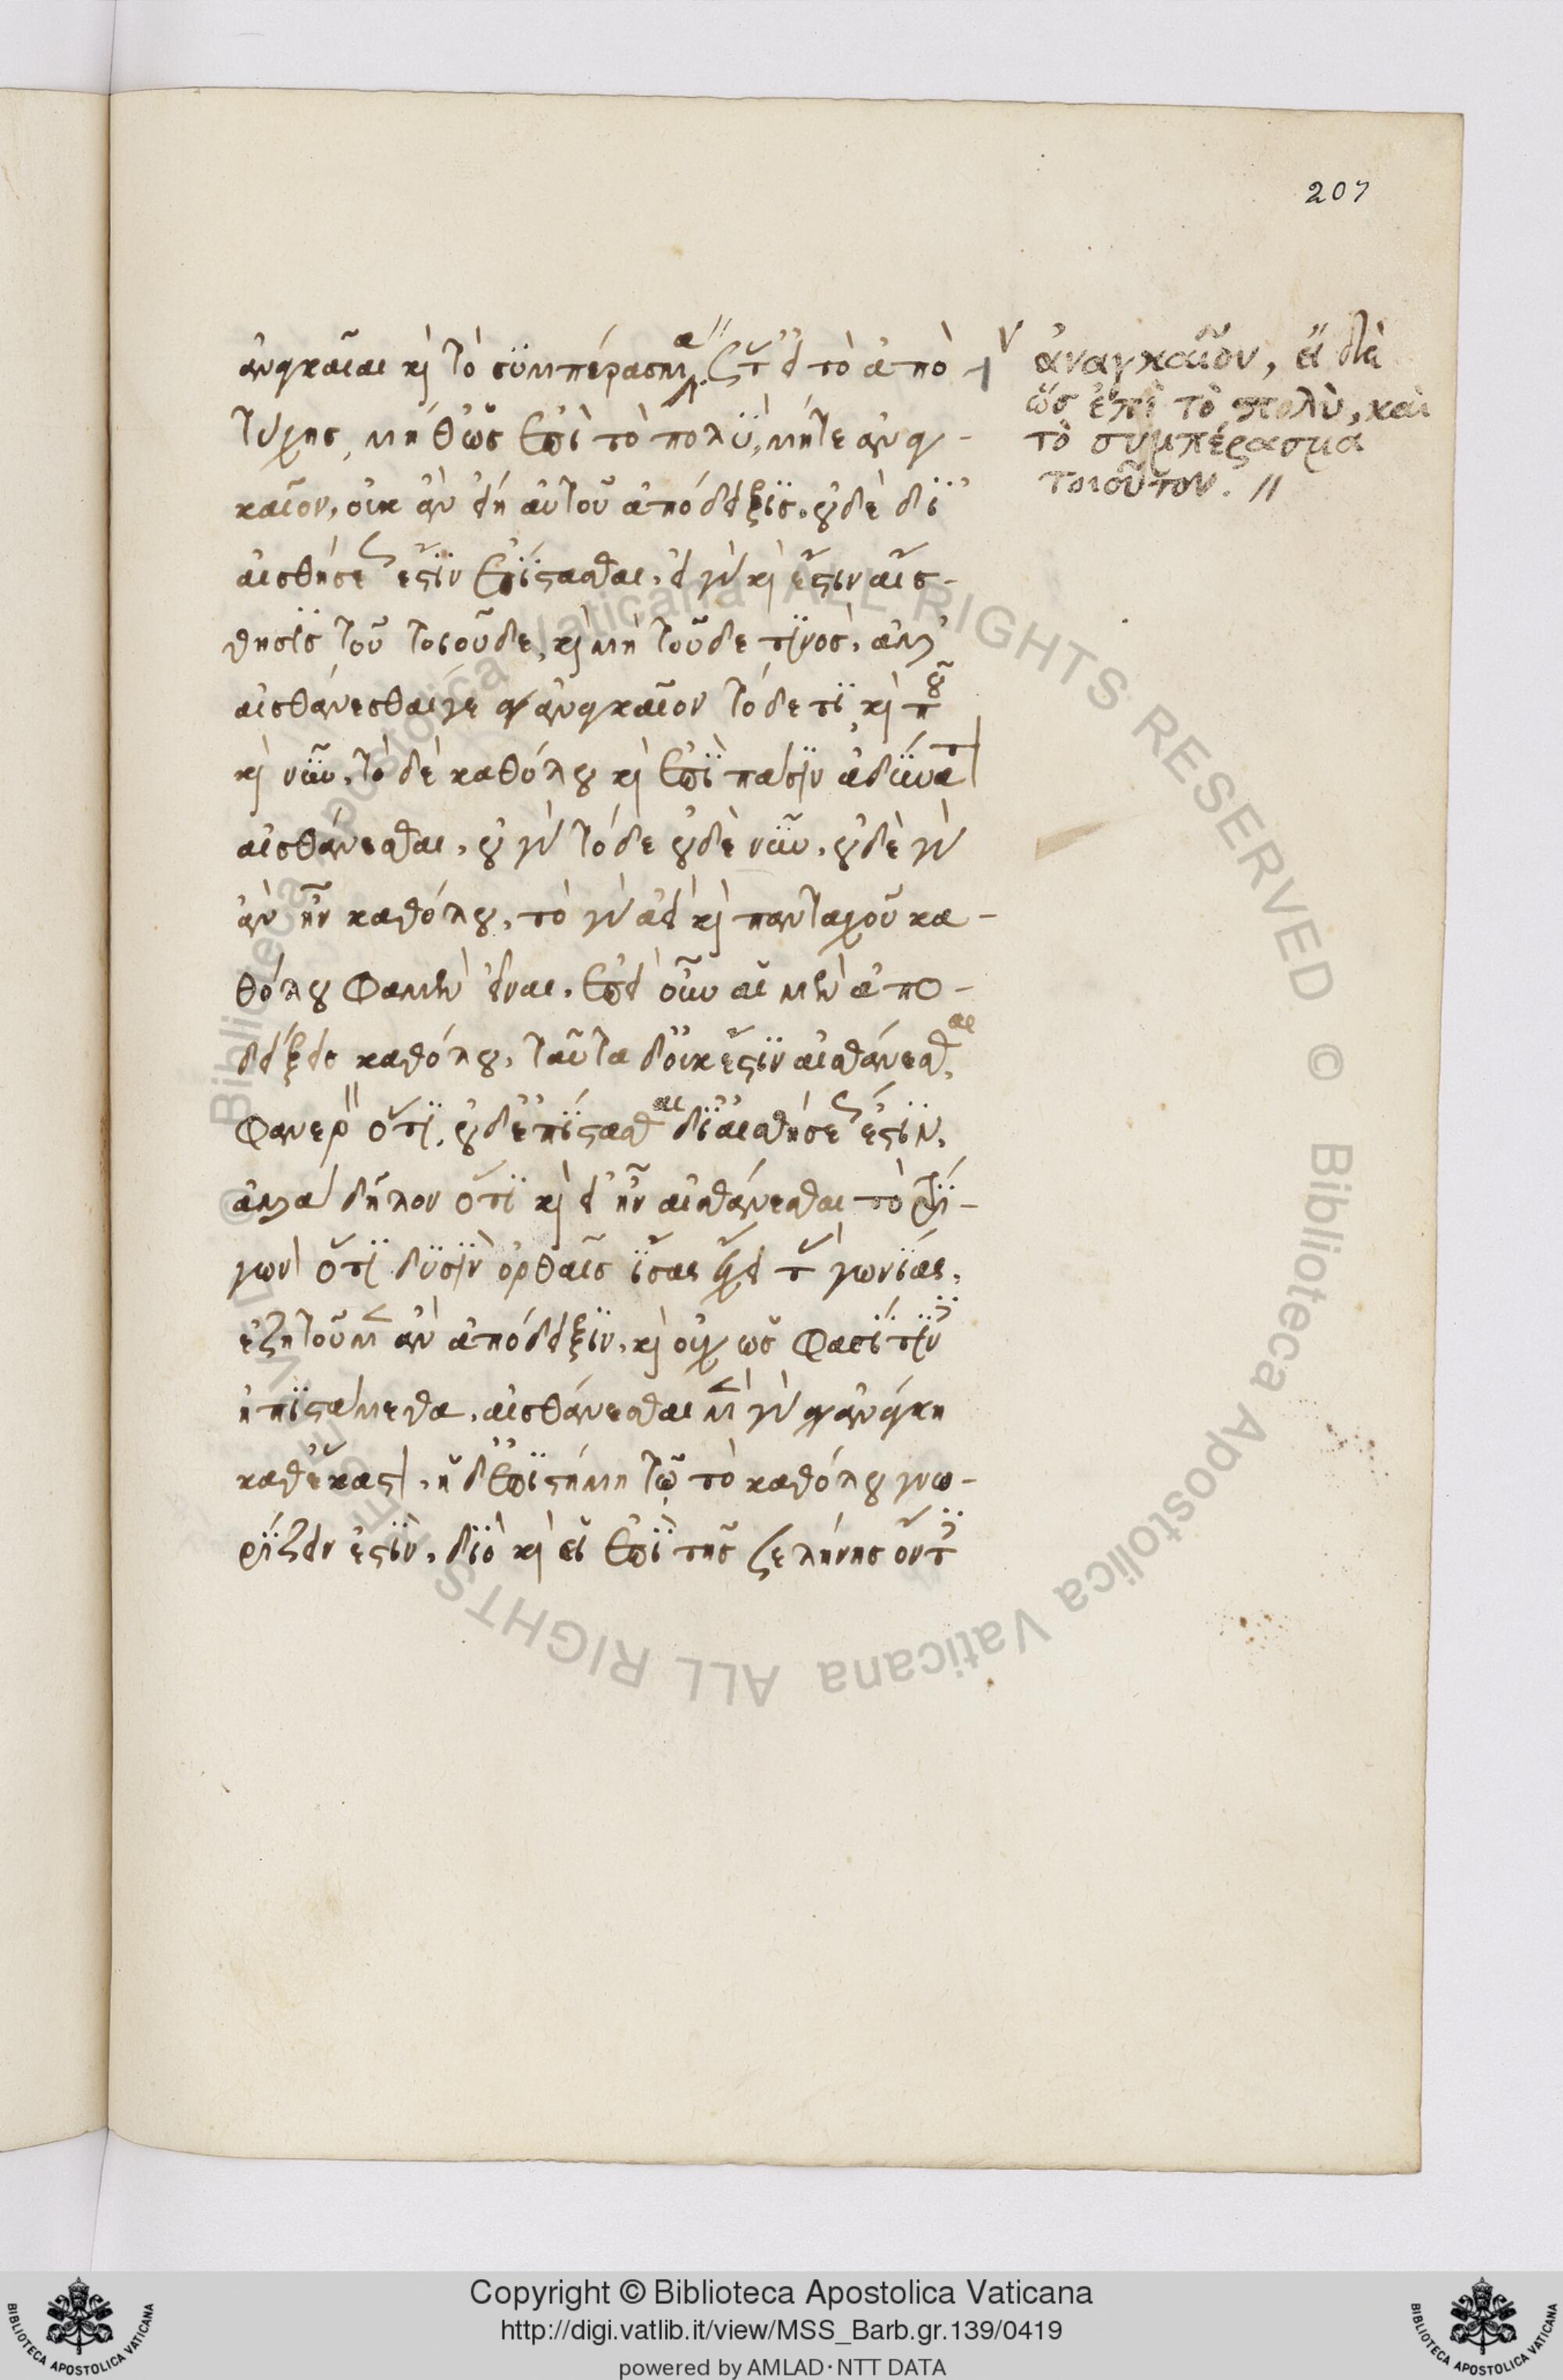 207
ἀναγκαῖαι καὶ τὸ συμπέρασμα ὥστ' εἰ τὸ ἀπὸ
τύχης, μήθ' ὡς ἐπὶ τὸ πολὺ, μήτε ἀναγ-
καῖον, οὐκ ἂν εἴη αὐτοῦ ἀπόδειξις. οὐδὲ δι'
αἰσθήσεως ἔστιν ἐπίστασθαι. εἰ γὰρ καὶ ἔστιν αἴσ-
θησις τοῦ τοιοῦδε, καὶ μὴ τοῦδε τινὸς, ἀλλ'
αἰσθάνεσθαί γε ἀναγκαῖον τόδε τι καὶ ποῦ
καὶ νῦν. τὸ δὲ καθόλου καὶ ἐπὶ πᾶσιν ἀδύνατον
αἰσθάνεσθαι. οὐ γὰρ τόδε οὐδὲ νῦν. οὐδὲ γὰρ
ἂν ἦν καθόλου. τὸ γὰρ ἀεὶ καὶ πανταχοῦ κα-
θόλου φαμὲν εἶναι. ἐπεὶ οὖν αἱ μὲν ἀπο-
δείξεις καθόλου, ταῦτα δ' οὐκ ἔστιν αἰσθάνεσθαι,
φανερὸν ὅτι, οὐδ' ἐπίστασθαι δι' αἰσθήσεως ἔστιν.
ἀλλὰ δῆλον ὅτι καὶ εἰ ἦν αἰσθάνεσθαι τὸ τρί-
γωνον ὅτι δυσὶν ὀρθαῖς ἴσας ἔχει τὰς γωνίας,
ἐζητοῦμεν ἂν ἀπόδειξιν. καὶ οὐχ ὥς φασί τινες
ἠπιστάμεθα. αἰσθάνεσθαι μὲν γὰρ ἀνάγκη
καθ' ἕκαστον, ἡ δ' ἐπιστήμη τῷ τὸ καθόλου γνω-
ρίζειν ἐστίν. διὸ καὶ εἰ ἐπὶ τῆς σελήνης ὄντες
ἀναγκαῖον, εἰ δὲ
ὡς ἐπὶ τὸ πολὺ, καὶ
τὸ συμπέρασμα
τοιοῦτον. //
Copyright © Biblioteca Apostolica Vaticana
http://digi.vatlib.it/view/MSS_Barb.gr.139/0419
powered by AMLAD·NTT DATA